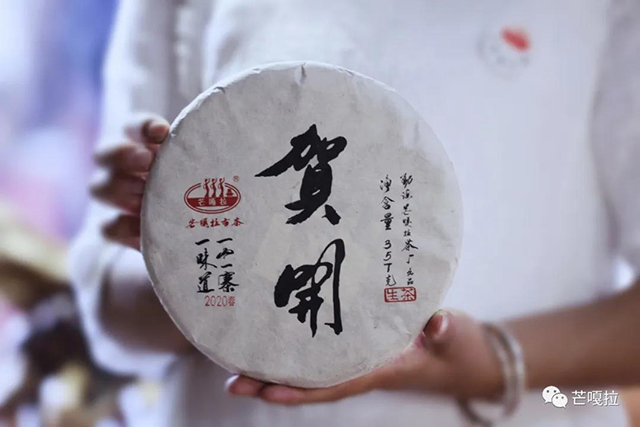 賀開
勐海芒嘎拉茶厂出品
净含量357克
生茶
芒嘎拉
®
芒嘎拉古茶
一山一寨
一味道
2020春
芒嘎拉